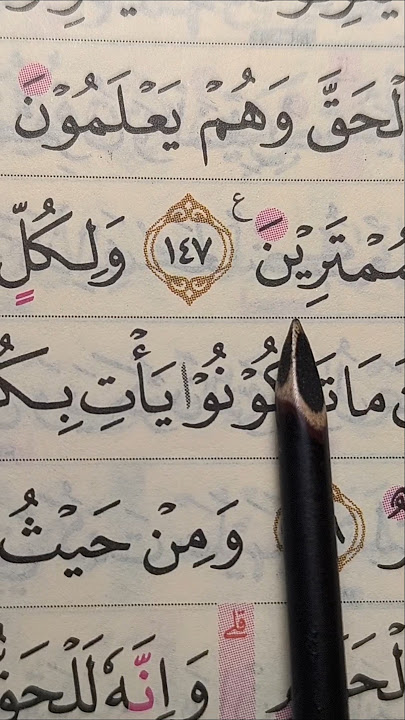 الْحَقَّ وَهُمْ يَعْلَمُوْنَ
مُمْتَرِيْنَ ع ١٤٧ وَلِكُلٍّ
مَا تَكُوْنُوْا يَأْتِ بِكُ
وَمِنْ حَيْثُ
الْحَ قلى وَاِنَّهٗ لَلْحَقُّ